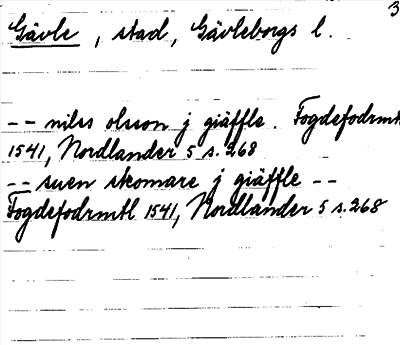 3
Gävle, stad, Gävleborgs l.
-- nilss olsson j giäffle. Fogdefodrmtl
1541, Nordlander 5 s. 268
-- suen skomare j giäffle --
Fogdefodrmtl 1541, Nordlander 5 s. 268